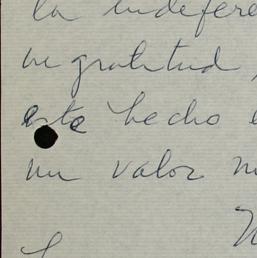 la indefere
mi gratitud,
este hecho e
un valor m